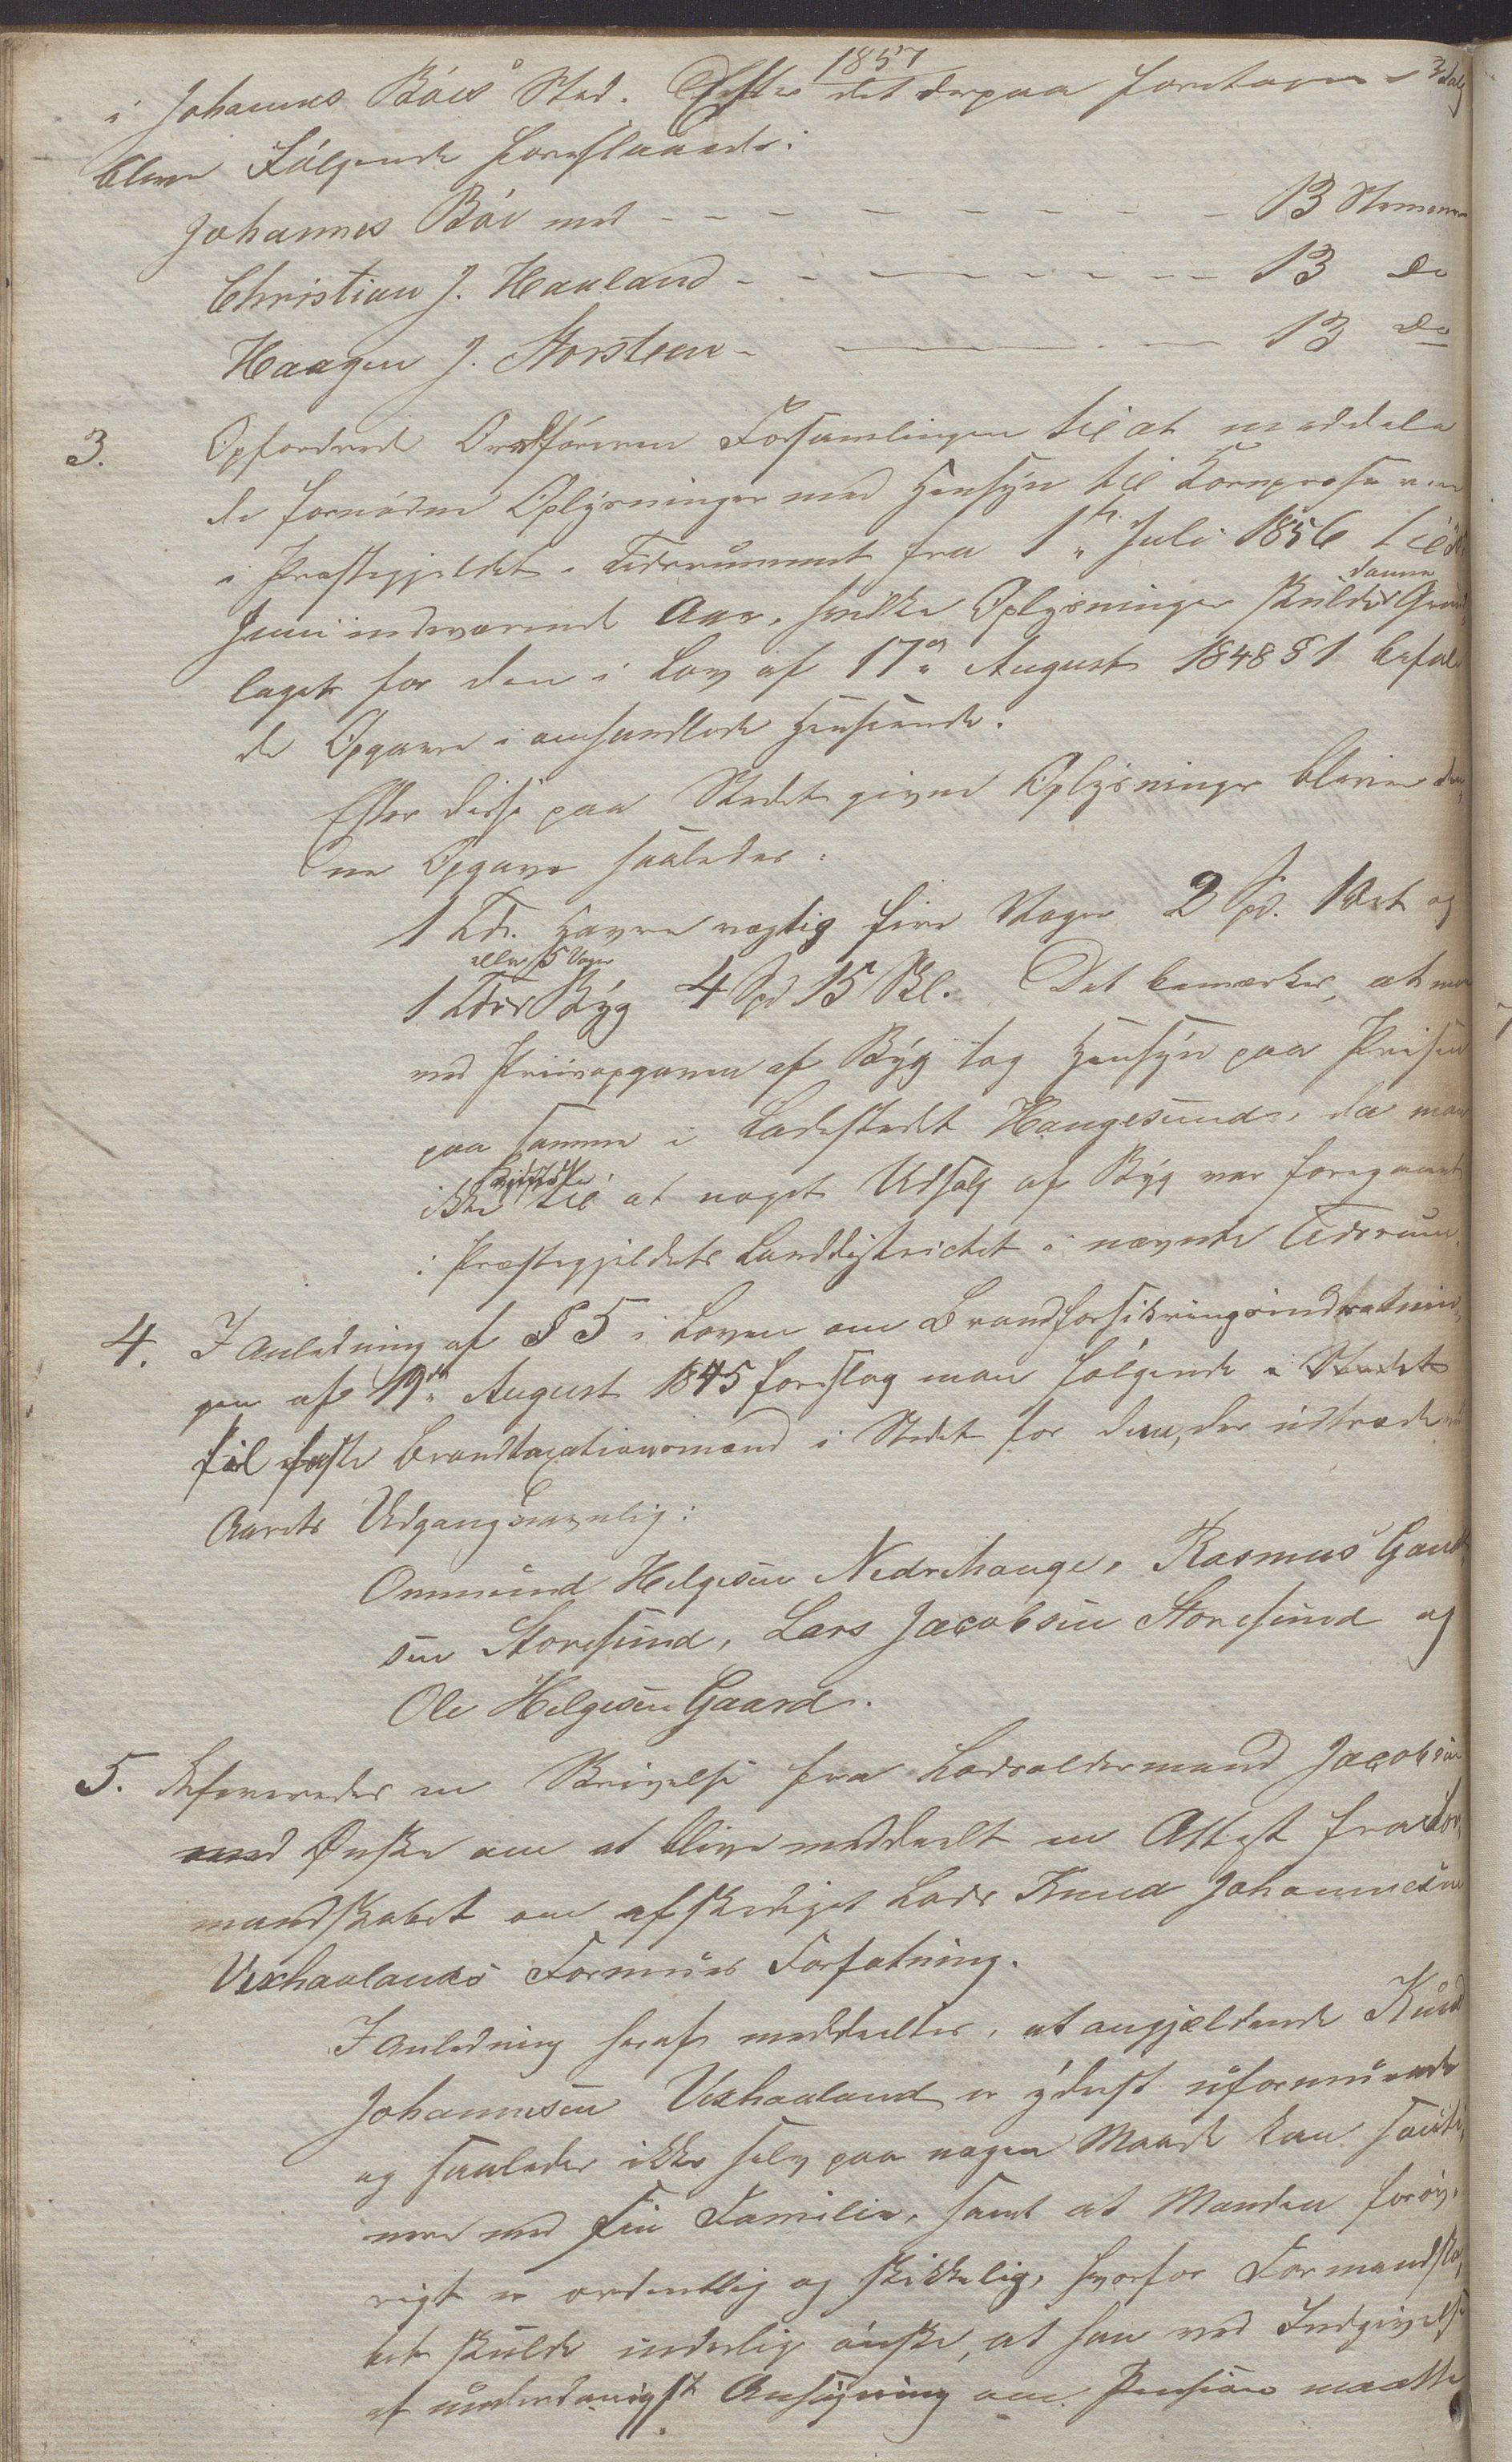 1857
i Johannes Böes Sted. Efter det derpaa foretagne Valg
bleve Fölgende foreslaaede:
Johannes Böe med - - - - - - - - - 13 Stemmer
Christian J. Haaland - - - - - - - - 13 do
Haagen J. Storsteen - - - - 13 do
3. Opfordrede Ordföreren Forsamlingen til at meddele
de fornödne Oplysninger med Hensyn til Kornpriserne
i Præstegjeldet i Tidsrummet fra 1ste Juli 1856 til
Juni indeværende Aar, hvilke Oplysninger skulde danne Grund,
laget for den i Lov af 17de August 1848 § 1 befale,
de Opgave i omhandlede Henseende.
Efter disse paa Stedet givne Oplysninger bliver den,
ne Opgave saaledes:
1 Td. Havre vægtig fire Vager 2 Spd. 1 Ort og
1 Tde eller 5 Vager Byg 4 Spd 15 Skl. Det bemærkes, at man
ved Priisopgaven af Byg tog Hensyn paa Prisen
paa samme i Ladestedet Haugesund, da man
ikke kjendte til at noget Udsalg af Byg var foregaaet
i Præstegjeldets Landdistrict i nævnte Tidsrum.
4. I Anledning af § 5 i Loven om Brandforsikringsindretnin,
gen af 19de August 1845 foreslog man fölgende i Stedet
til faste Brandtaxationsmænd i Stedet for dem, der udtræde ved
Aarets Udgang nemlig:
Ommund Helgesen Nedrehauge, Rasmus Gaut
sen Storesund, Lars Jacobsen Storesund og
Ole Helgesen Gaard.
5. Refereredes en Skrivelse fra Lodsoldermand Jacobsen
med Ønske om at blive meddeelt en Attest fra For,
mandskabet om afskediget Lods Knud Johannesen
Vexhaalands Formues Forfatning.
I Anledning heraf meddeeltes, at angjældende Knud
Johannesen Vexhaaland er yderst uformuende
og saaledes ikke selv paa nogen Maade kan
nere med sin Familie, samt at Manden forøv,
rigt er ordentlig og skikkelig, hvorfor Formandska,
bet skulde inderlig önske, at han ved Indgivelse
af underdanigst Ansögning om Pension maatte